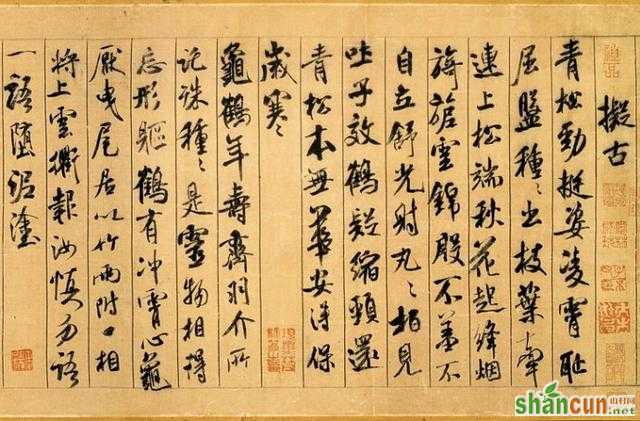 擬古
青松勁挺姿凌霄恥
屈盤種〻出枝葉牽
連上松端秋花起絳烟
旖旎雲錦殷不羞不
自立舒光射丸〻柏見
吐子效鶴疑縮頸還
青松本無華安得保
歲寒
龜鶴年壽齊羽介所
託殊種〻是靈物相得
忘形軀鶴有冲霄心龜
厭曳尾居以竹兩附口相
將上雲衢報汝慎勿語
一語墮泥塗
shancun
山村网
.net